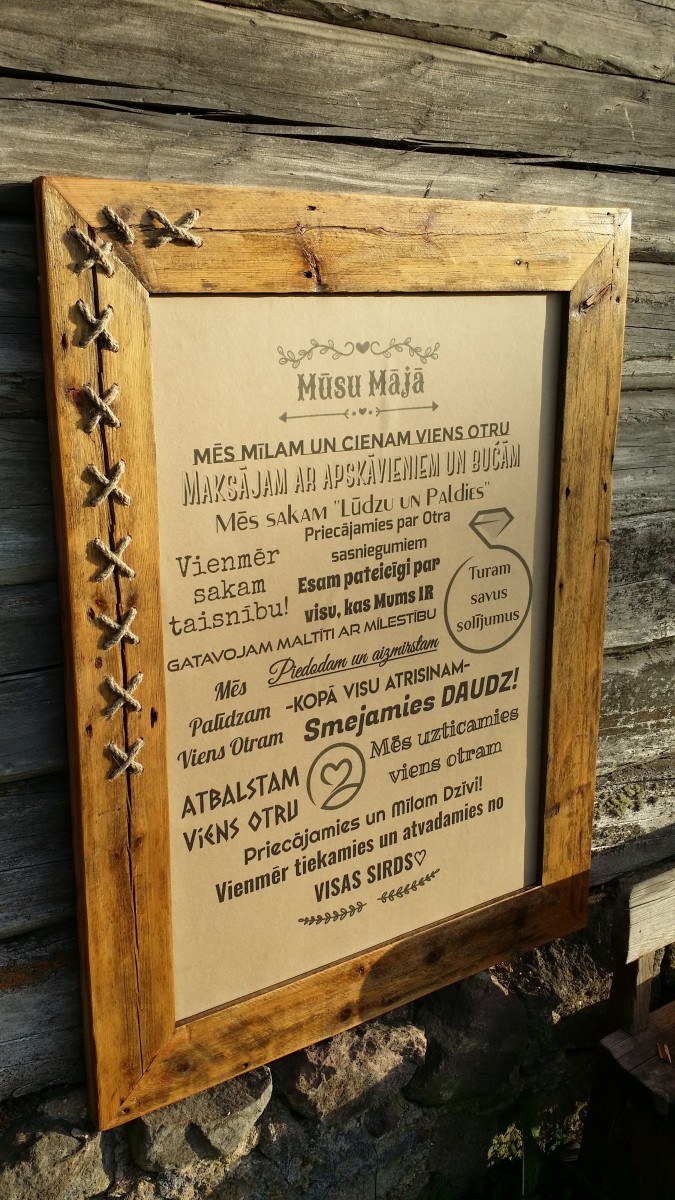 Mūsu Mājā
MĒS MĪLAM UN CIENAM VIENS OTRU
MAKSĀJAM AR APSKĀVIENIEM UN BUĆĀM
MĒS SAKAM "LŪDZU UN PALDIES"
Priecājamies par Otra
sasniegumiem
Vienmēr
sakam
taisnību!
Esam pateicīgi par
visu, kas Mums IR
Turam
savus
solījumus
GATAVOJAM MALTĪTI AR MĪLESTĪBU
Piedodam un aizmirstam
Mēs
Palīdzam
Viens Otram
-KOPĀ VISU ATRISINAM-
Smejamies DAUDZ!
Mēs uzticamies
viens otram
ATBALSTAM
VIENS OTRU
Priecājamies un Mīlam Dzīvi!
Vienmēr tiekamies un atvadamies no
VISAS SIRDS♡